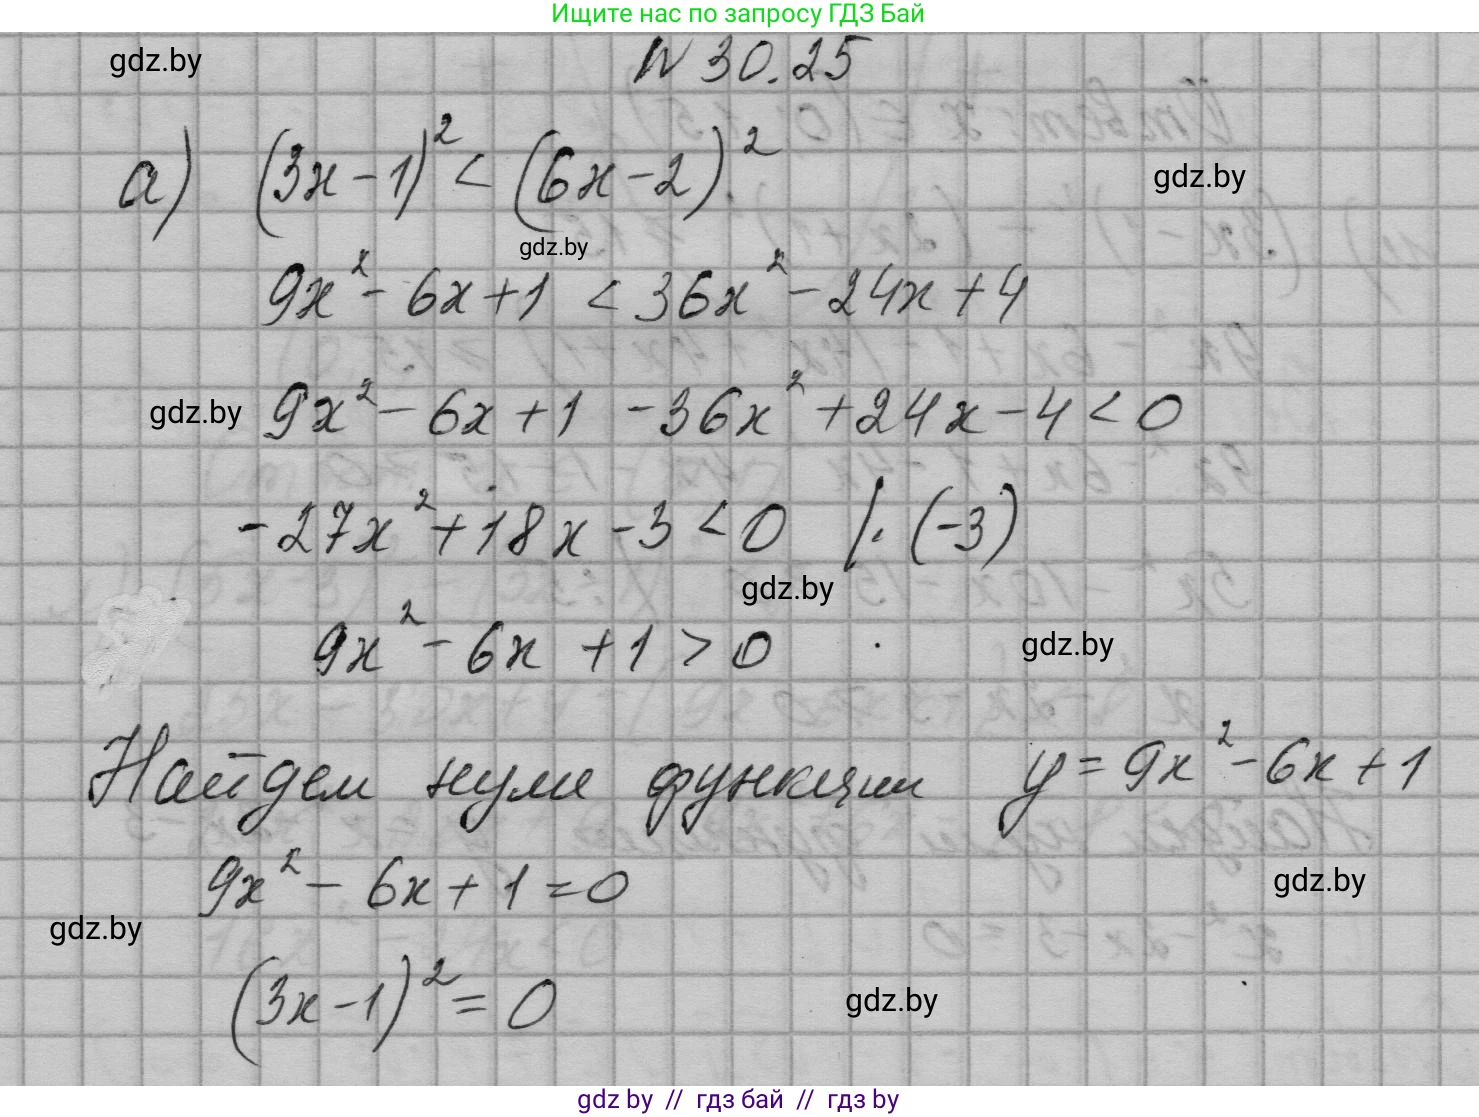 Ищите нас по запросу ГДЗ Бай
gdz.by
N 30.25
а) (3x-1)² < (6x-2)²
gdz.by
gdz.by
9x² - 6x + 1 < 36x² - 24x + 4
gdz.by
9x² - 6x + 1 - 36x² + 24x - 4 < 0
-27x² + 18x - 3 < 0 | : (-3)
gdz.by
9x² - 6x + 1 > 0
gdz.by
Найдем нули функции y = 9x² - 6x + 1
9x² - 6x + 1 = 0
gdz.by
gdz.by
(3x-1)² = 0
gdz.by
gdz by // гдз бай // гдз by